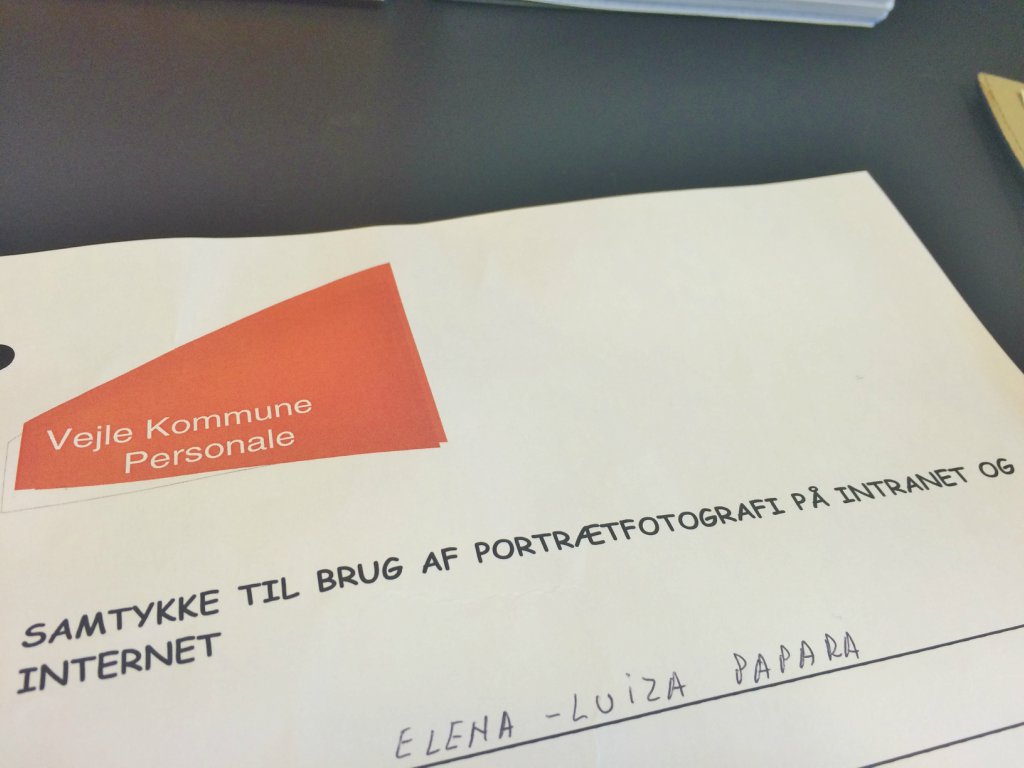 Vejle Kommune
Personale
SAMTYKKE TIL BRUG AF PORTRÆTFOTOGRAFI PÅ INTRANET OG
INTERNET
ELENA-LUiZA PAPARA